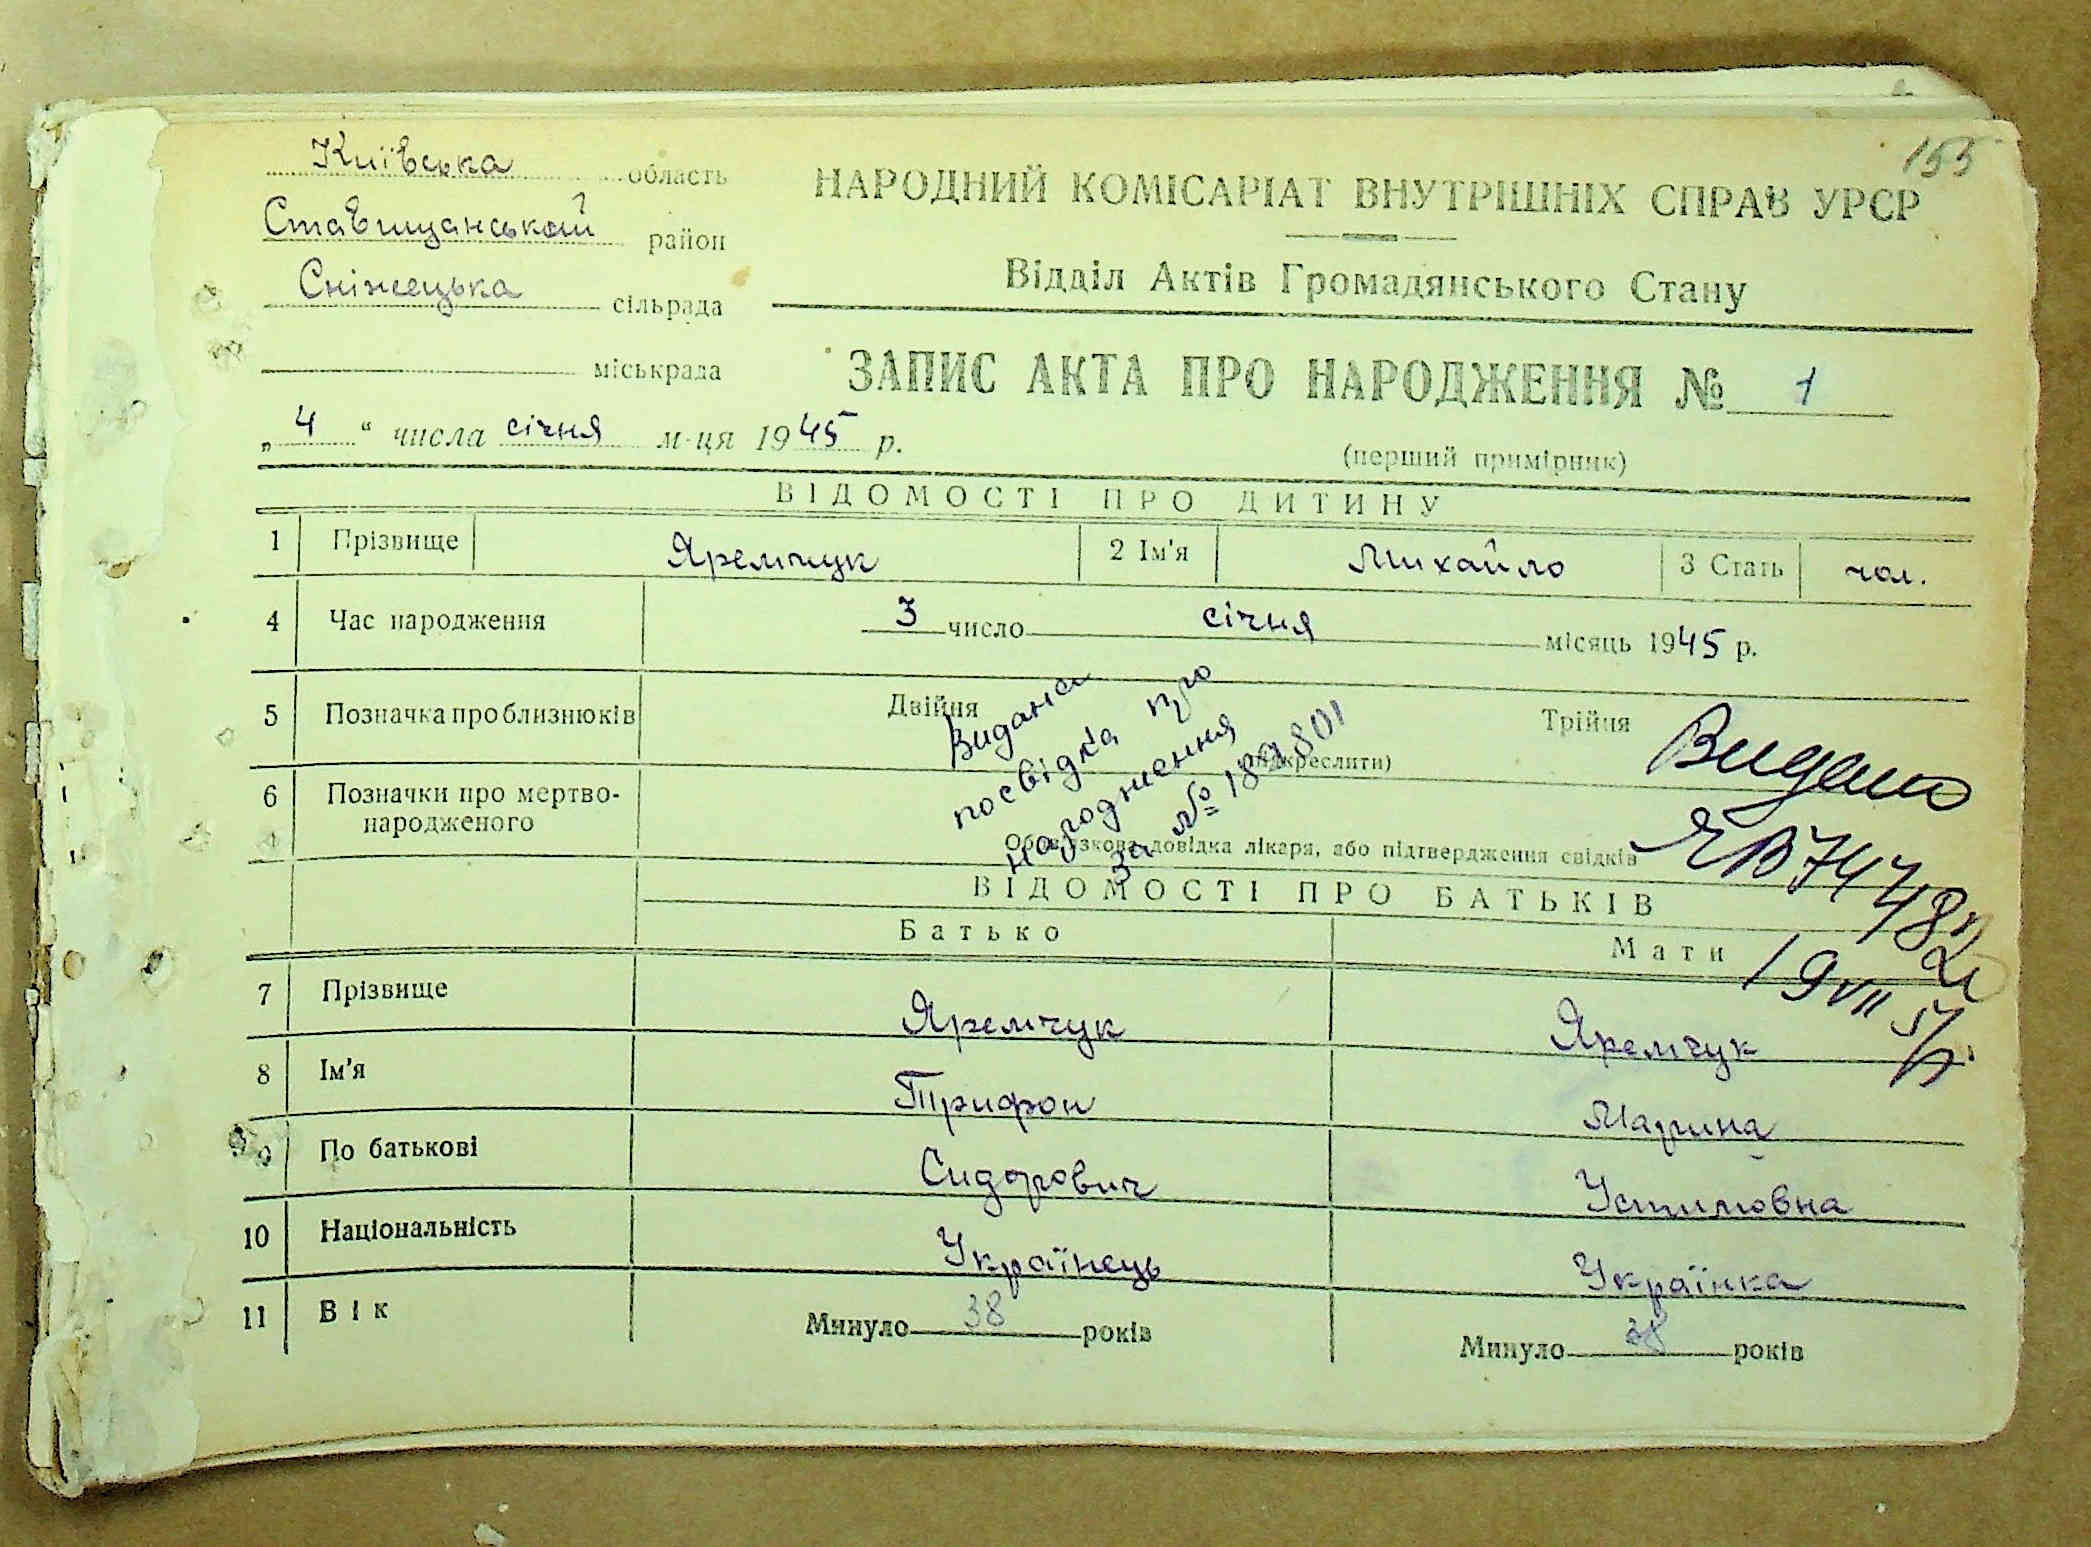 155
Київська область
Ставищанський район
Сніжецька сільрада
міськрада
НАРОДНИЙ КОМІСАРІАТ ВНУТРІШНІХ СПРАВ УРСР
Відділ Актів Громадянського Стану
ЗАПИС АКТА ПРО НАРОДЖЕННЯ № 1
„ 4 “ числа січня м-ця 1945 р.
(перший примірник)
ВІДОМОСТІ ПРО ДИТИНУ
1 Прізвище Яремчук 2 Ім'я Михайло 3 Стать чол.
4 Час народження 3 число січня місяць 1945 р.
5 Позначка про близнюків Двійня Трійня
(підкреслити)
6 Позначки про мертво-
народженого
Обов'язкова довідка лікаря, або підтвердження свідків
Видана
посвідка про
народження
За № 189801
Видано
19 VII 57
ВІДОМОСТІ ПРО БАТЬКІВ
Батько Мати
7 Прізвище Яремчук Яремчук
8 Ім'я Трифон Марина
9 По батькові Сидорович Устимовна
10 Національність Українець Українка
11 Вік Минуло 38 років Минуло 38 років